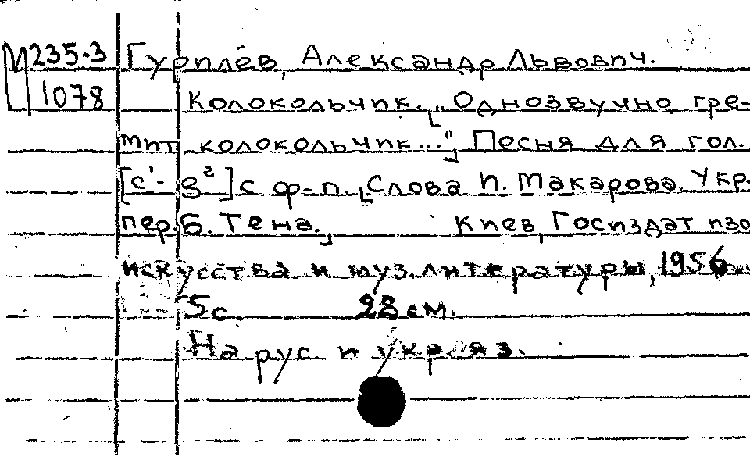 М235-3 Гурилёв, Александр Львович.
1078 Колокольчик. „Однозвучно гре-
мит колокольчик..." Песня для гол.
[c¹- g²] с ф-п. Слова И. Макарова. Укр.
пер. Б. Тена. Киев, Госиздат изо
искусства и муз. литературы, 1956
5с 28 см.
На рус. и укр. яз.